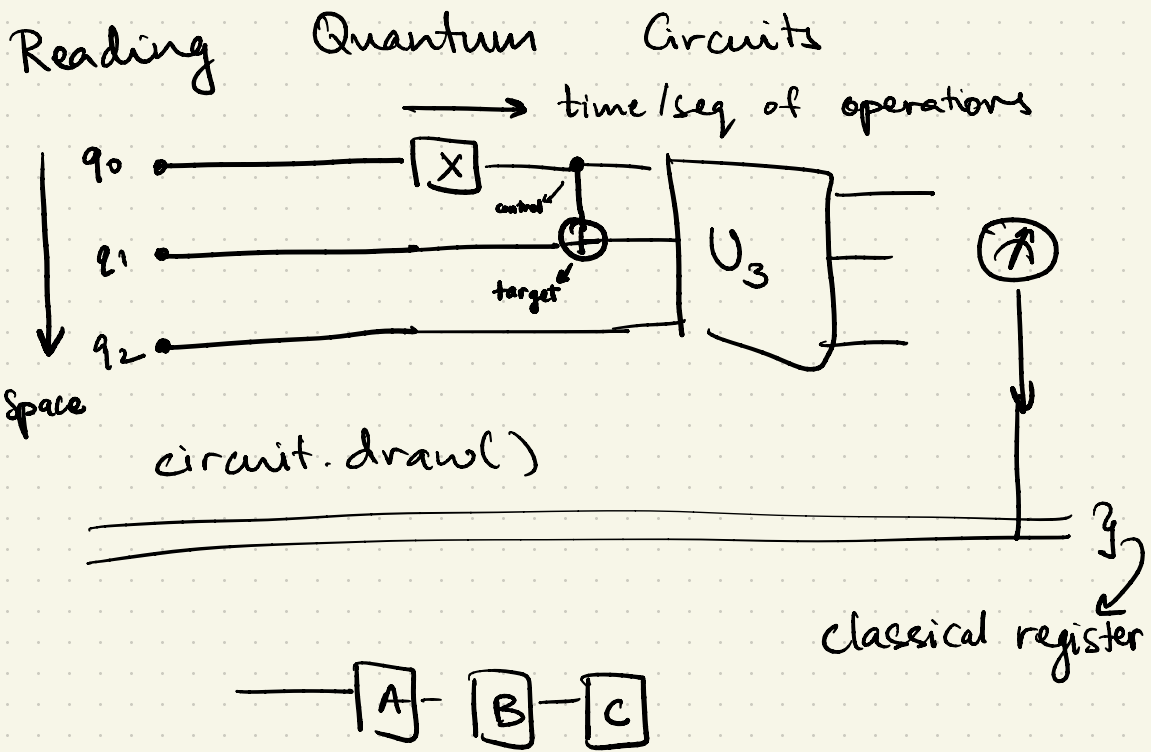 Reading Quantum Circuits
time/seq of operations
q0
X
control
q1
target
U3
q2
Space
circuit.draw()
}
classical register
A B C